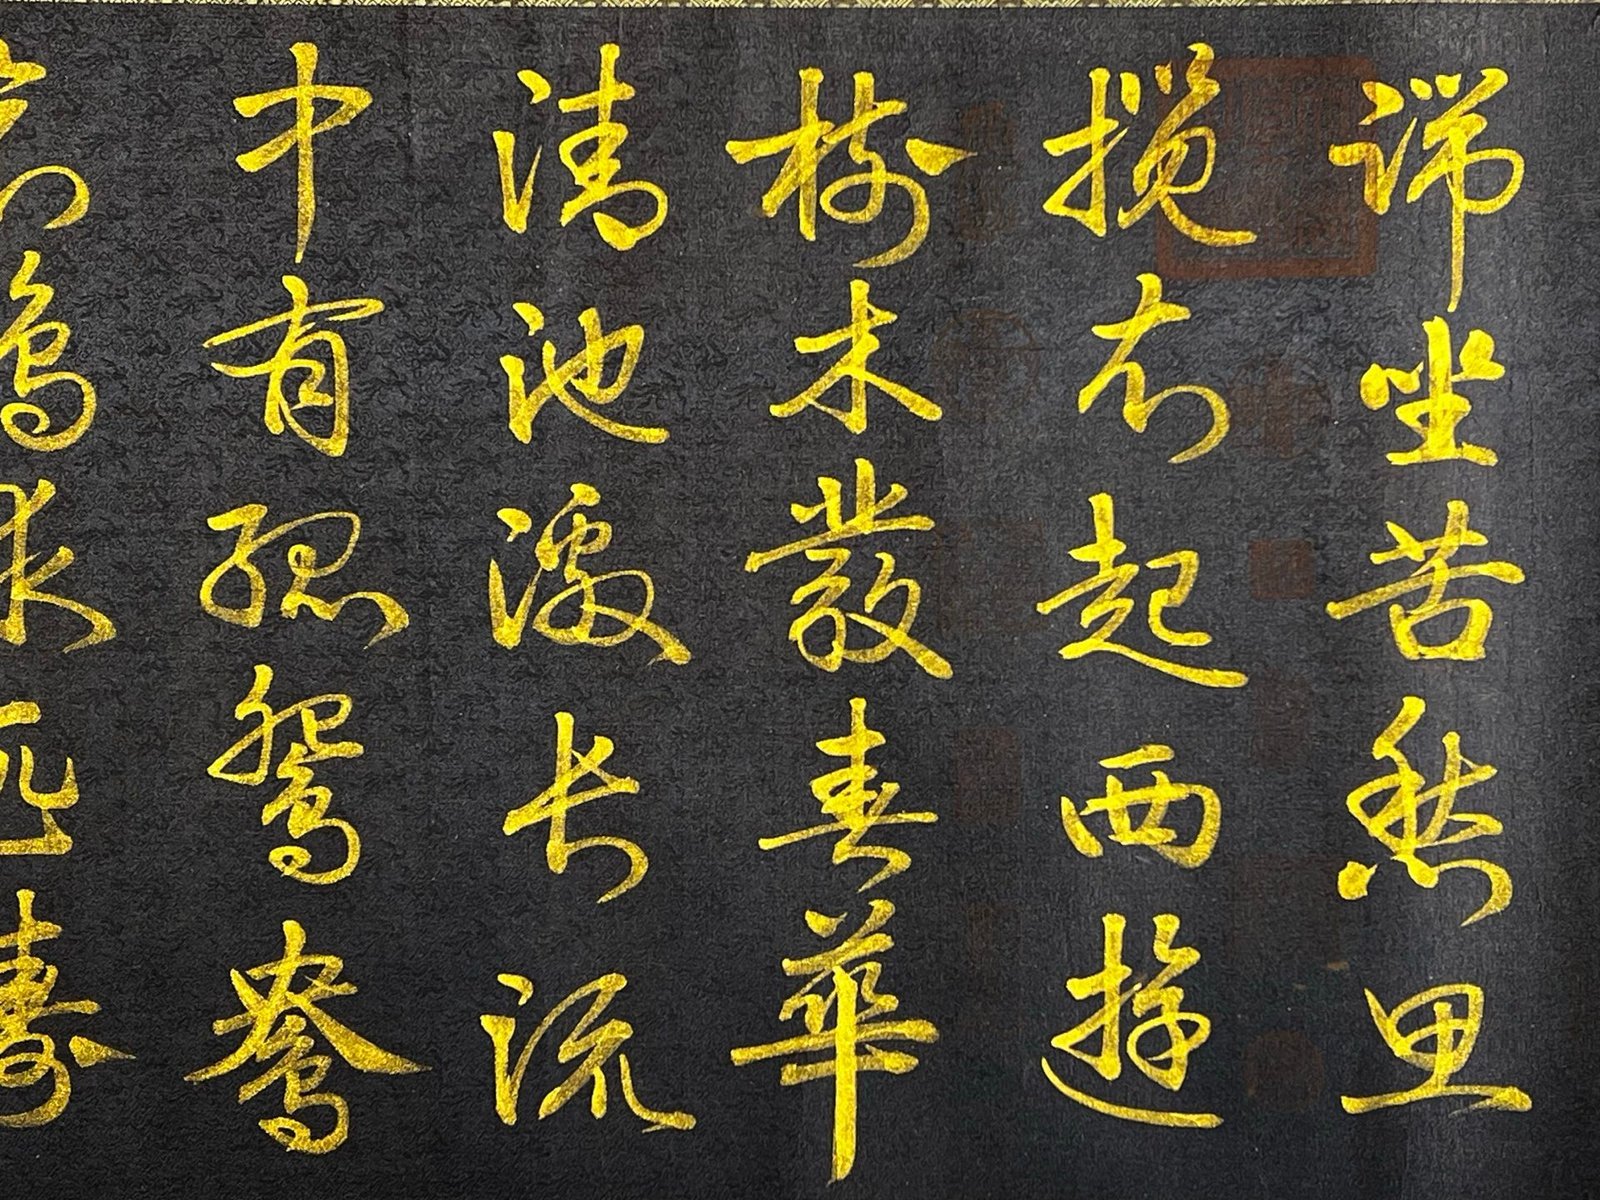 端坐苦愁思
攬衣起西遊
樹木發春華
清池激長流
中有孤鴛鴦
哀鳴求匹儔